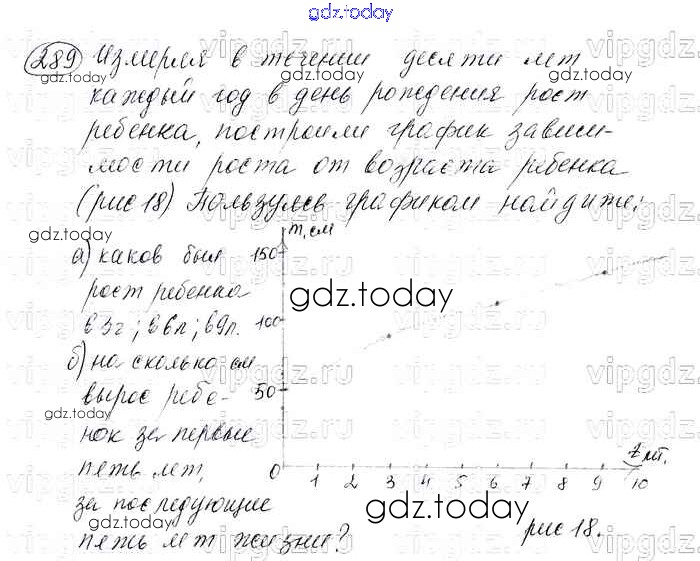 gdz.today
289 Измеряя в течении десяти лет
каждый год в день рождения рост
ребенка, построили график зависи-
мости роста от возраста ребенка
(рис 18) Пользуясь графиком найдите:
а) каков был
рост ребенка
в 3г; в 6л; в 9л.
б) на сколько см
вырос ребе-
нок за первые
пять лет,
за последующие
пять лет жизни?
m, см
150
100
50
0 1 2 3 4 5 6 7 8 9 10
t лт.
рис 18.
gdz.today
gdz.today
gdz.today
gdz.today
gdz.today
gdz.today
gdz.today
vipgdz.ru